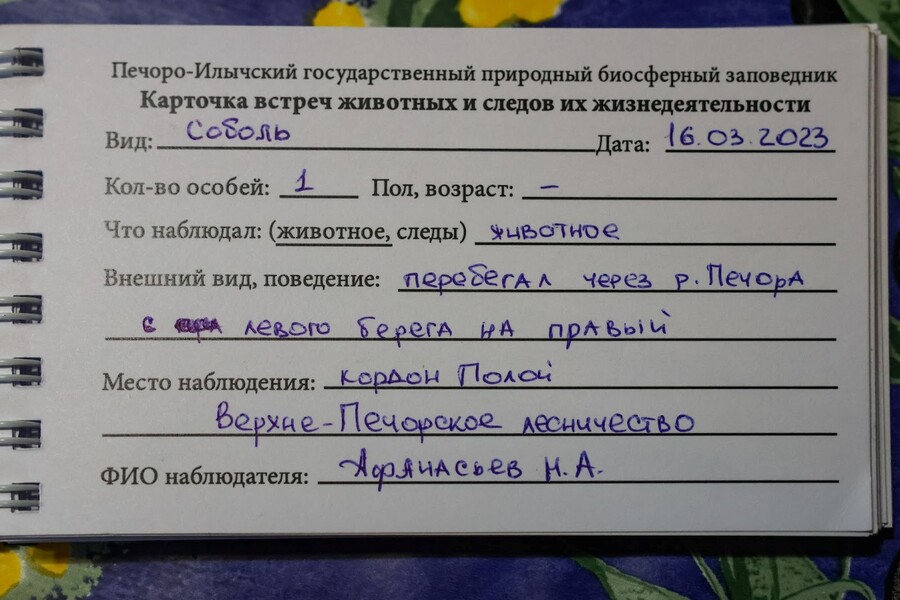 Печоро-Илычский государственный природный биосферный заповедник
Карточка встреч животных и следов их жизнедеятельности
Вид: Соболь Дата: 16.03.2023
Кол-во особей: 1 Пол, возраст: –
Что наблюдал: (животное, следы) животное
Внешний вид, поведение: перебегал через р. Печора
с левого берега на правый
Место наблюдения: кордон Полой
Верхне-Печорское лесничество
ФИО наблюдателя: Афанасьев Н.А.